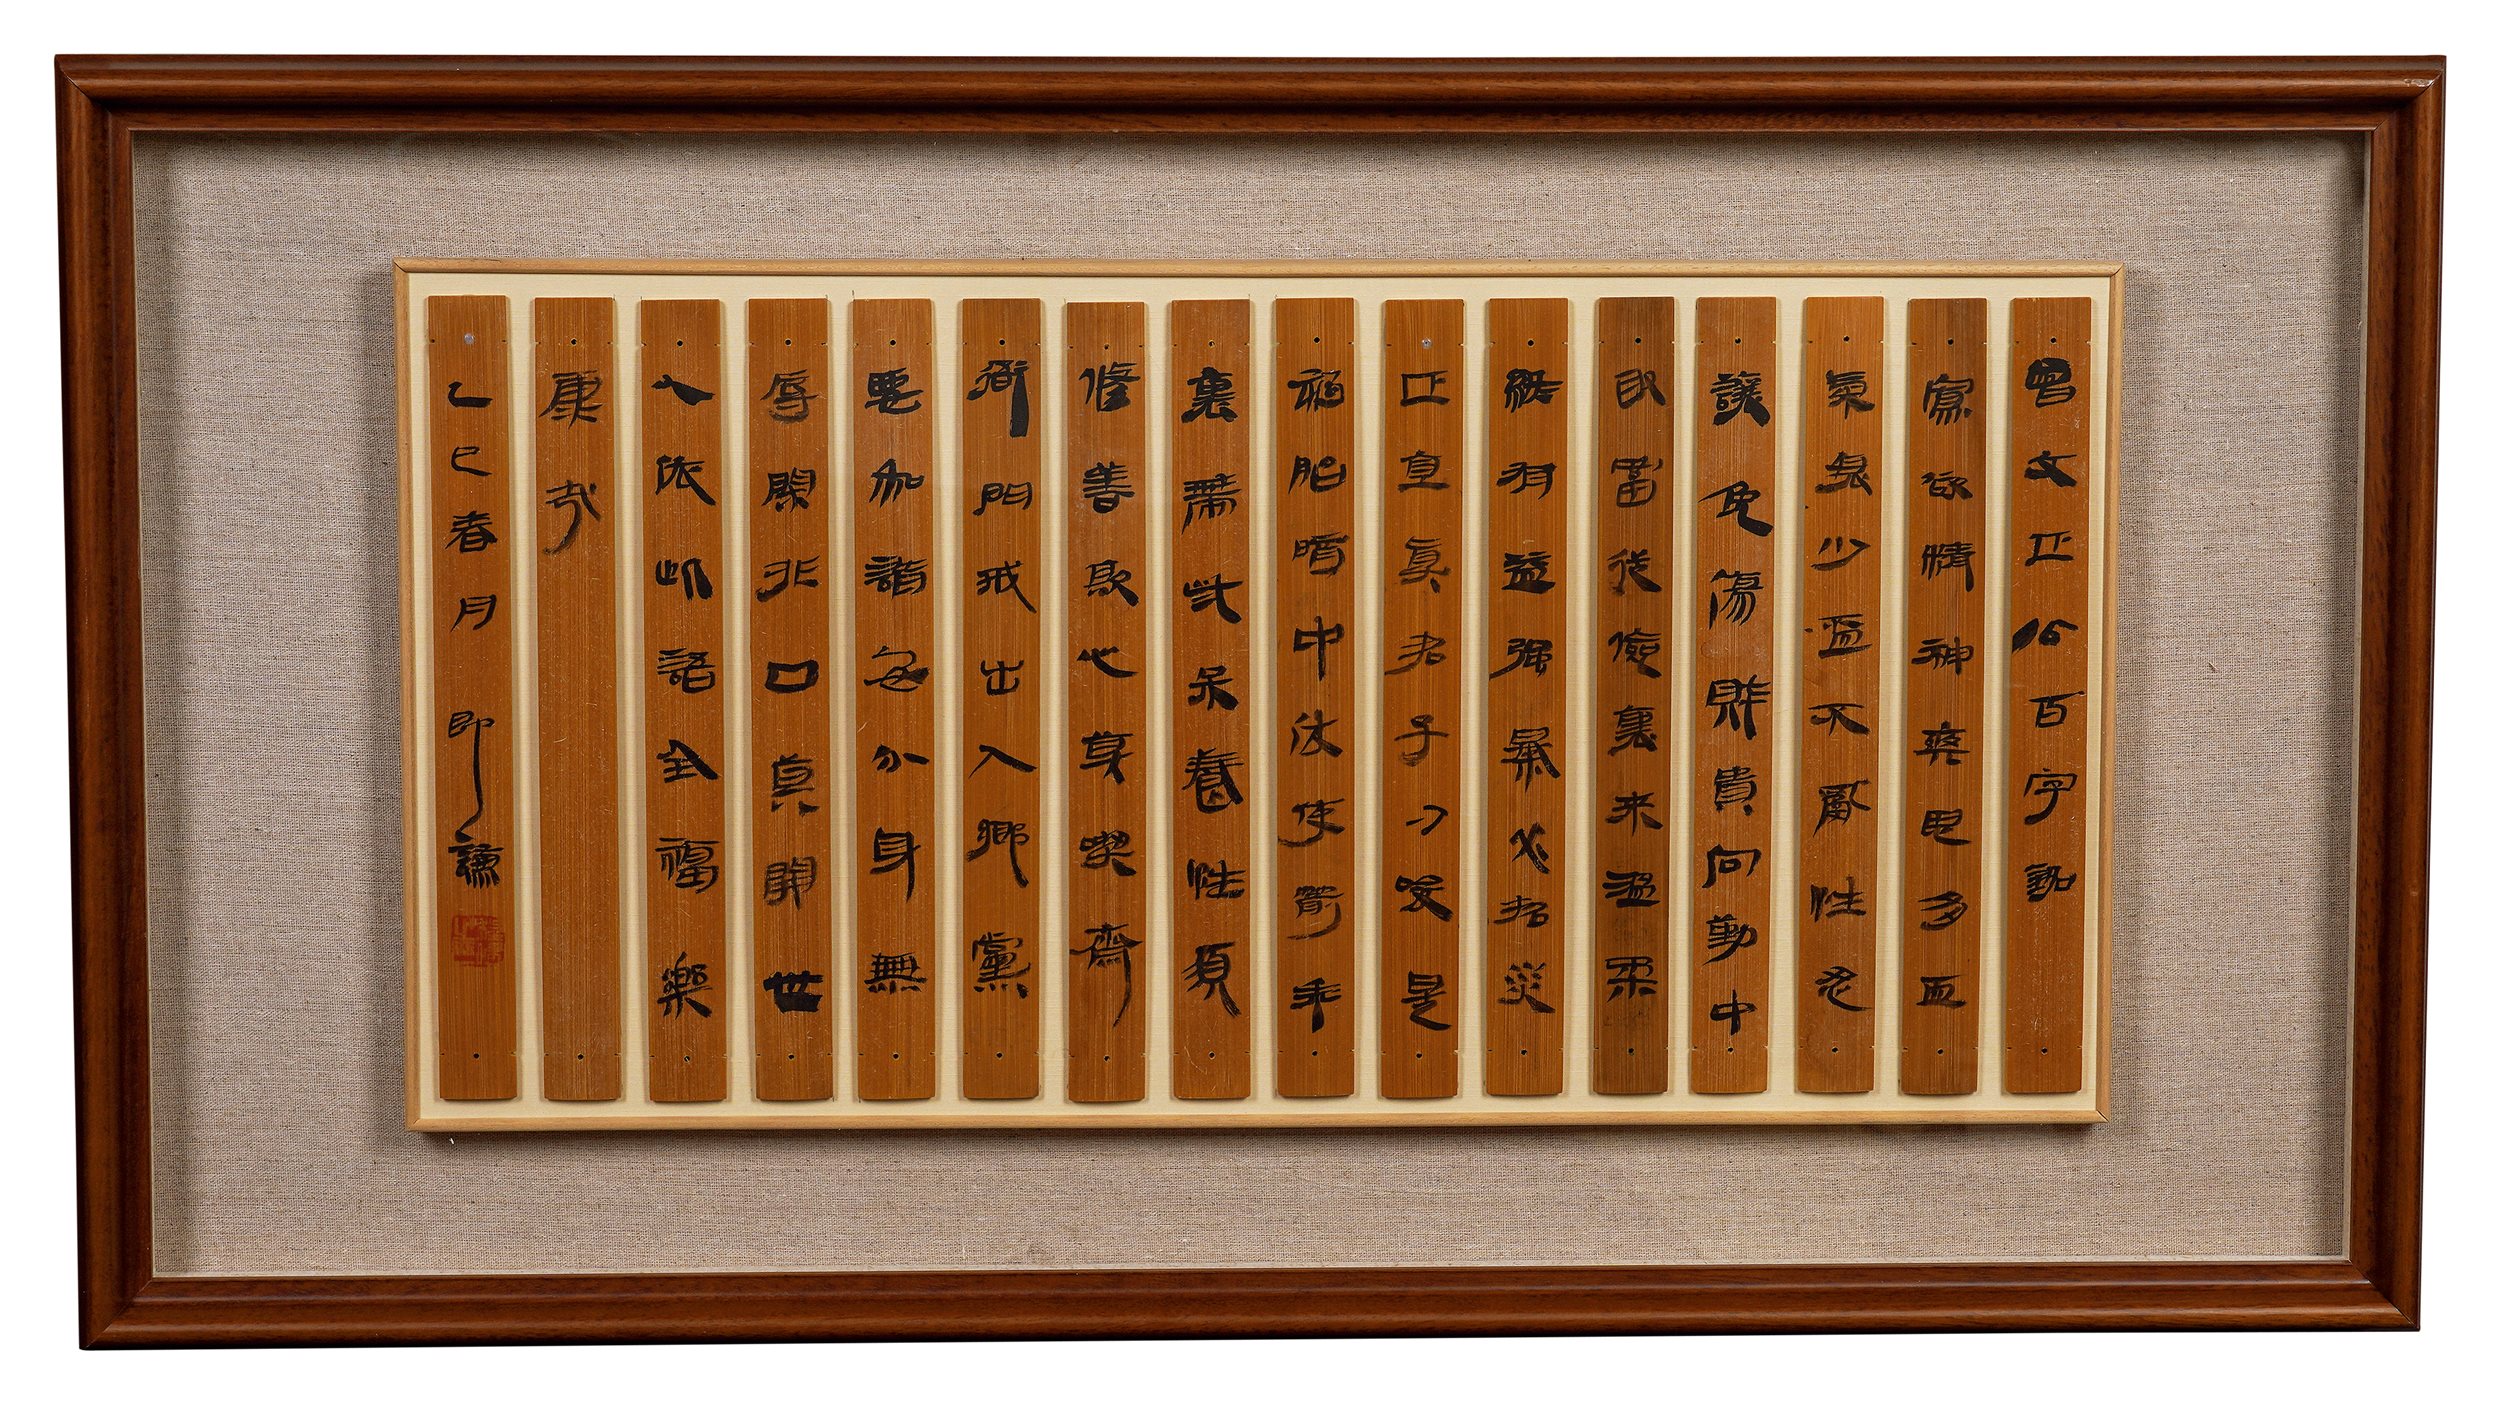 曾文正公百字銘
寡欲精神爽思多血
氣衰少盃不亂性忍
讓免傷財貴向勤中
取富從儉裏來溫柔
終有益強暴必招災
正直真君子刁唆是
禍胎暗中休使箭乖
裏藏些呆養性須
修善欺心莫喫齋
衙門戒出入鄉黨
要和諧安分身無
辱閑非口莫開世
人依此語全福樂
康哉
乙巳春月 即謙